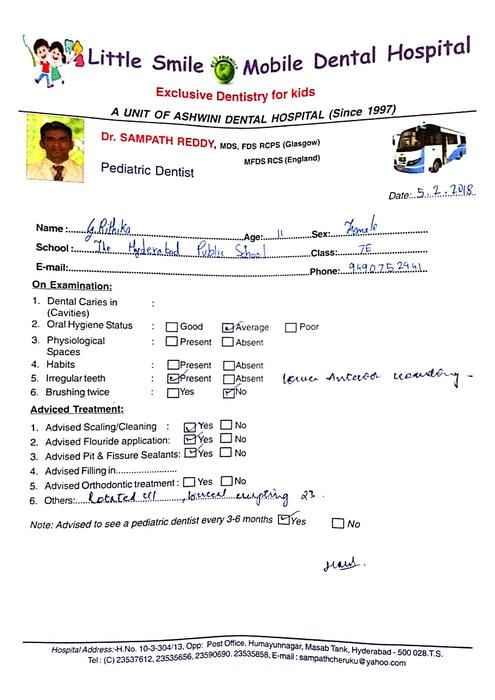 Little Smile Mobile Dental Hospital
Exclusive Dentistry for kids
A UNIT OF ASHWINI DENTAL HOSPITAL (Since 1997)
Dr. SAMPATH REDDY, MDS, FDS RCPS (Glasgow)
MFDS RCS (England)
Pediatric Dentist
Date: 5.2.2018
Name: G.Rithika Age: 11 Sex: Female
School: The Hyderabad Public School Class: 7E
E-mail: Phone: 9490752941
On Examination:
1. Dental Caries in (Cavities) :
2. Oral Hygiene Status : Good Average Poor
3. Physiological Spaces : Present Absent
4. Habits : Present Absent
5. Irregular teeth : Present Absent lower Anterior crowding -
6. Brushing twice : Yes No
Adviced Treatment:
1. Advised Scaling/Cleaning : Yes No
2. Advised Flouride application: Yes No
3. Advised Pit & Fissure Sealants: Yes No
4. Advised Filling in
5. Advised Orthodontic treatment : Yes No
6. Others: Rotated 11, buccal erupting 23.
Note: Advised to see a pediatric dentist every 3-6 months Yes No
Hospital Address:-H.No. 10-3-304/13, Opp: Post Office, Humayunnagar, Masab Tank, Hyderabad - 500 028.T.S.
Tel : (C) 23537612, 23535656, 23590690. 23535858, E-mail : sampathcheruku@yahoo.com